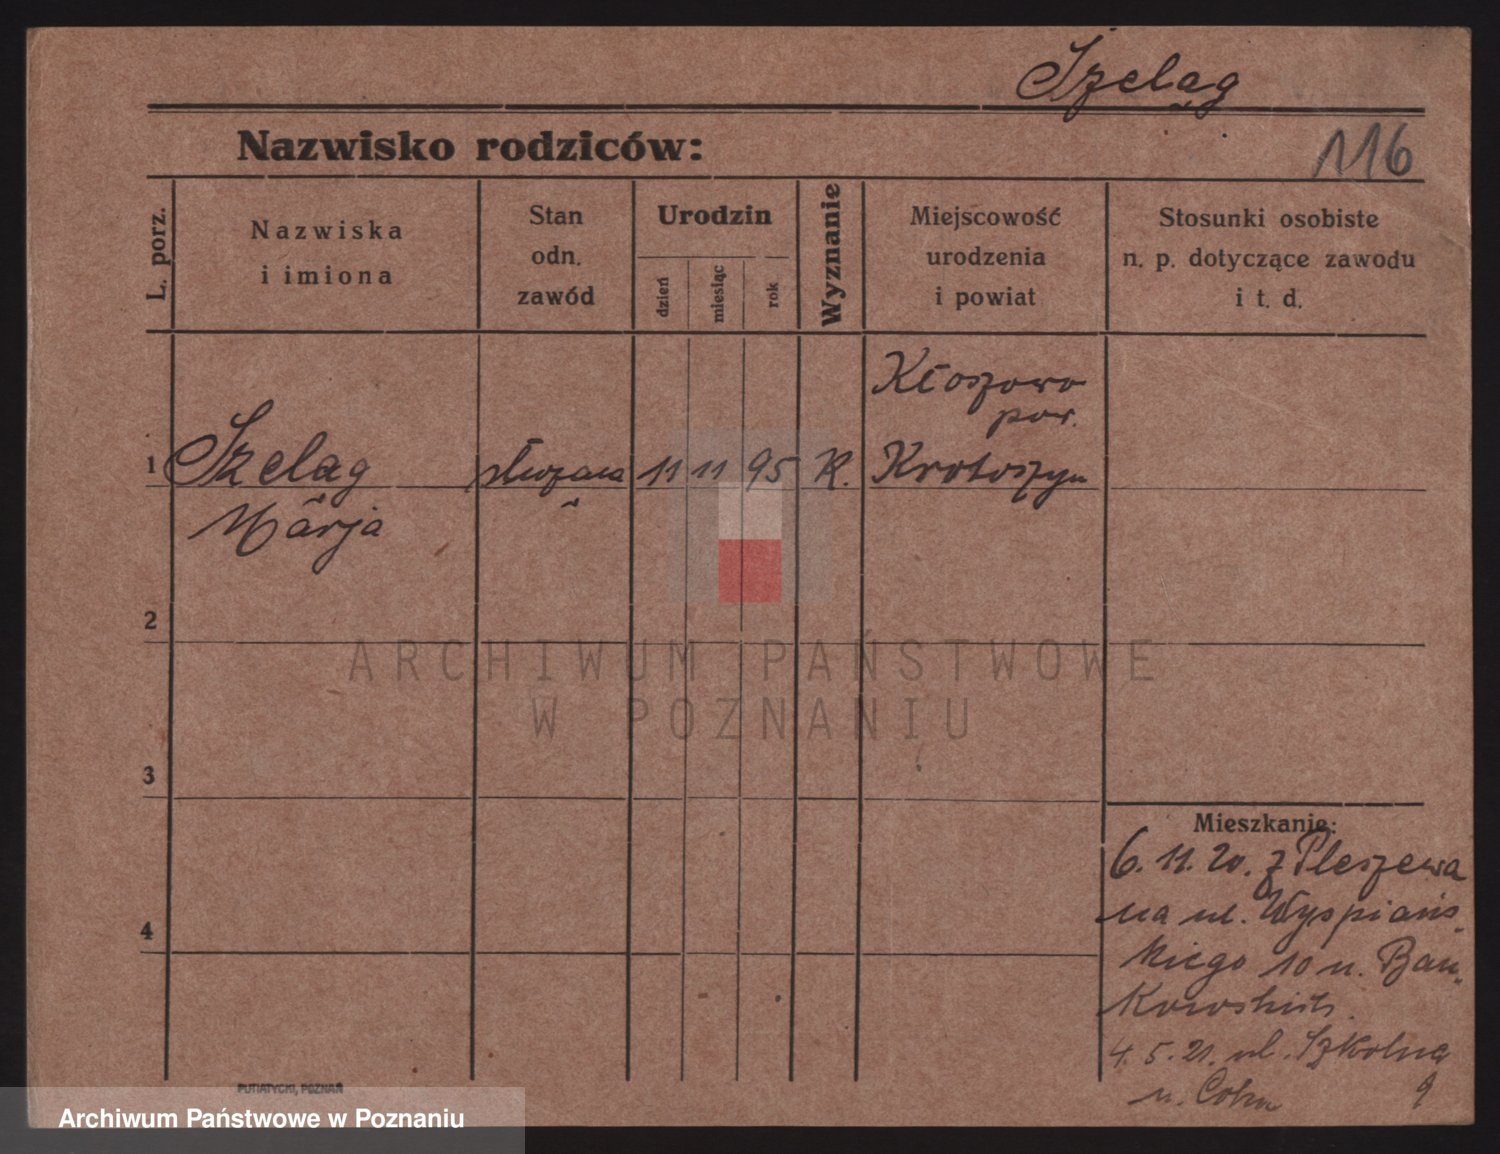 Szeląg
Nazwisko rodziców:
116
L. porz.
Nazwiska
i imiona
Stan
odn.
zawód
Urodzin
dzień
miesiąc
rok
Wyznanie
Miejscowość
urodzenia
i powiat
Stosunki osobiste
n. p. dotyczące zawodu
i t. d.
1
Szeląg
Marja
służąca
11 11 95
K.
pow.
Krotoszyn
2
3
4
Mieszkanie:
6. 11. 20. z Pleszewa
na ul. Wyspiańs-
kiego 10 u. Ban-
kowskich.
4. 5. 21. ul. Szkolna
9
u. Cohn
PUTIATYCKI, POZNAŃ
ARCHIWUM PAŃSTWOWE
W POZNANIU
Archiwum Państwowe w Poznaniu